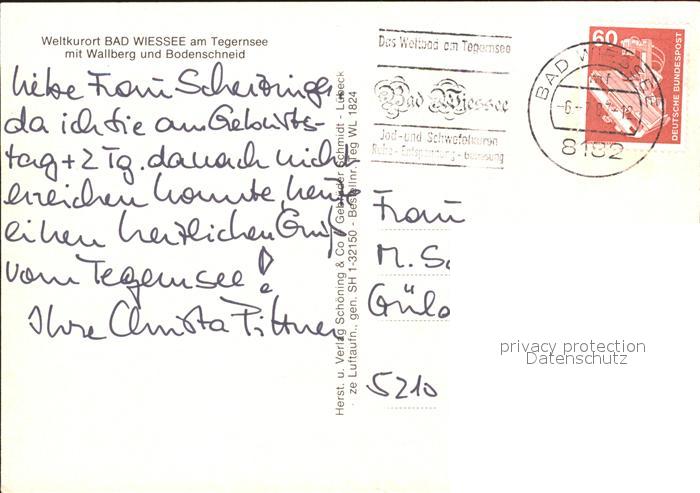 Weltkurort BAD WIESSEE am Tegernsee
mit Wallberg und Bodenschneid
Liebe Frau
da ich Sie am Geburts-
tag + 2 Tg. danach nicht
erreichen konnte, heute
einen herzlichen Gruß
vom Tegernsee!
Ihre Christa Pittner
Herst. u. Verlag Schöning & Co + Gebrüder Schmidt - Lübeck
ze Luftaufn., gen. SH 1-32150 - Bestellnr. Teg WL 1824
Das Weltbad am Tegernsee
Bad Wiessee
Jod- und Schwefelkuren
Ruhe - Entspannung - Genesung
BAD WIESSEE
8182
60
DEUTSCHE BUNDESPOST
Frau
M. Sc
Gülo
5210
privacy protection
Datenschutz